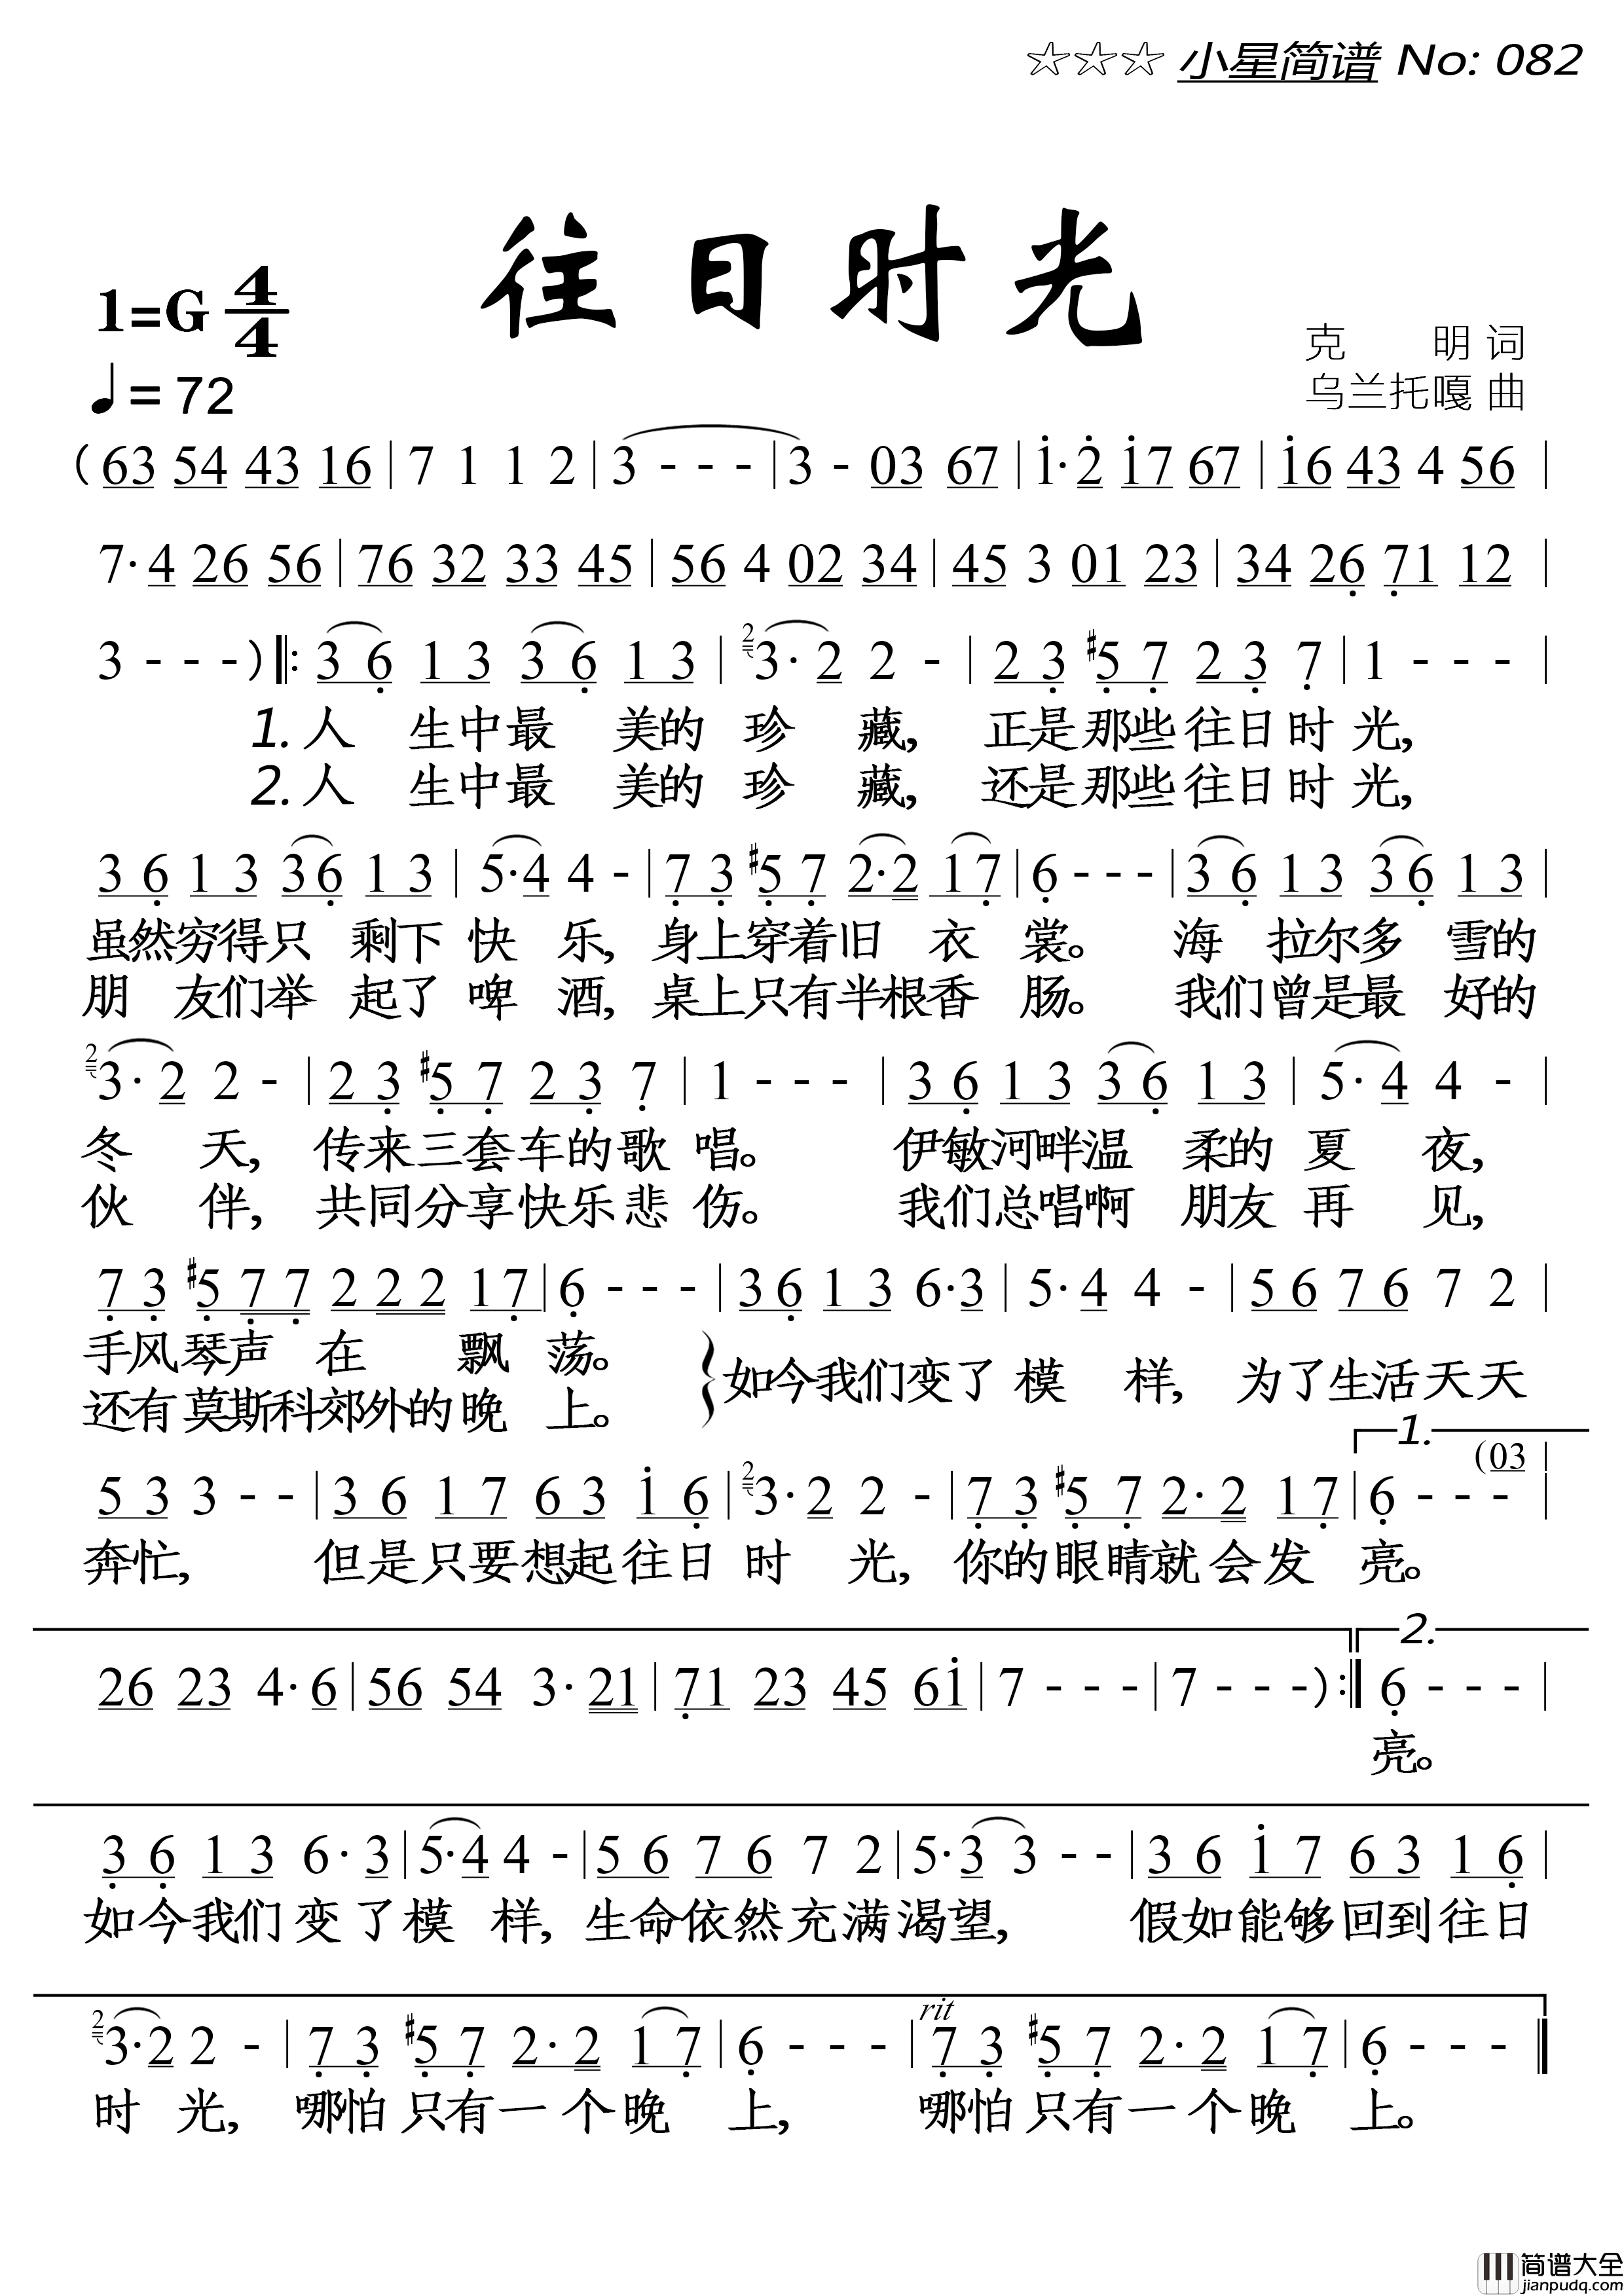 ☆☆☆ 小星简谱 No: 082
往日时光
1=G 4/4
♩= 72
克 明 词
乌兰托嘎 曲
(63 54 43 16 | 7 1 1 2 | 3 - - - | 3 - 03 67 | i· 2̇ i7 67 | i6 43 4 56 |
7· 4 26 56 | 76 32 33 45 | 56 4 02 34 | 45 3 01 23 | 34 26̣ 7̣1 12 |
3 - - - ) ‖: 3 6̣ 1 3 3 6̣ 1 3 | ²3· 2 2 - | 2 3̣ #5̣ 7̣ 2 3̣ 7̣ | 1 - - - |
1. 人 生中最 美的 珍 藏, 正是那些往日时光,
2. 人 生中最 美的 珍 藏, 还是那些往日时光,
3 6̣ 1 3 3 6̣ 1 3 | 5· 4 4 - | 7̣ 3̣ #5̣ 7̣ 2· 2 1 7̣ | 6̣ - - - | 3 6̣ 1 3 3 6̣ 1 3 |
虽然穷得只 剩下 快 乐, 身上穿着旧 衣 裳。 海 拉尔多 雪的
朋 友们举 起了 啤 酒, 桌上只有半根香 肠。 我们曾是最 好的
²3· 2 2 - | 2 3̣ #5̣ 7̣ 2 3̣ 7̣ | 1 - - - | 3 6̣ 1 3 3 6̣ 1 3 | 5· 4 4 - |
冬 天, 传来三套车的歌唱。 伊敏河畔温 柔的 夏 夜,
伙 伴, 共同分享快乐悲伤。 我们总唱啊 朋友 再 见,
7̣ 3̣ #5̣ 7̣ 7̣ 2 2 2 1 7̣ | 6̣ - - - | 3 6̣ 1 3 6· 3 | 5· 4 4 - | 5 6 7 6 7 2 |
手风琴声 在 飘 荡。
还有莫斯科郊外的晚 上。
如今我们变了 模 样, 为了生活天天
1.
(03 |
5 3 3 - - | 3 6 1 7 6 3 i 6̣ | ²3· 2 2 - | 7̣ 3̣ #5̣ 7̣ 2· 2 1 7̣ | 6̣ - - - |
奔忙, 但是只要想起往日 时 光, 你的眼睛就会发 亮。
2.
26 23 4· 6 | 56 54 3· 21 | 7̣1 23 45 6i | 7 - - - | 7 - - - ) :‖ 6̣ - - - |
亮。
3̣ 6̣ 1 3 6· 3 | 5· 4 4 - | 5 6 7 6 7 2 | 5· 3 3 - - | 3 6 i 7 6 3 1 6̣ |
如今我们变了模 样, 生命依然充满渴望, 假如能够回到往日
rit
²3· 2 2 - | 7̣ 3̣ #5̣ 7̣ 2· 2 1 7̣ | 6̣ - - - | 7̣ 3̣ #5̣ 7̣ 2· 2 1 7̣ | 6̣ - - - ‖
时 光, 哪怕只有一个晚 上, 哪怕只有一个晚 上。
简谱大全
jianpudq.com